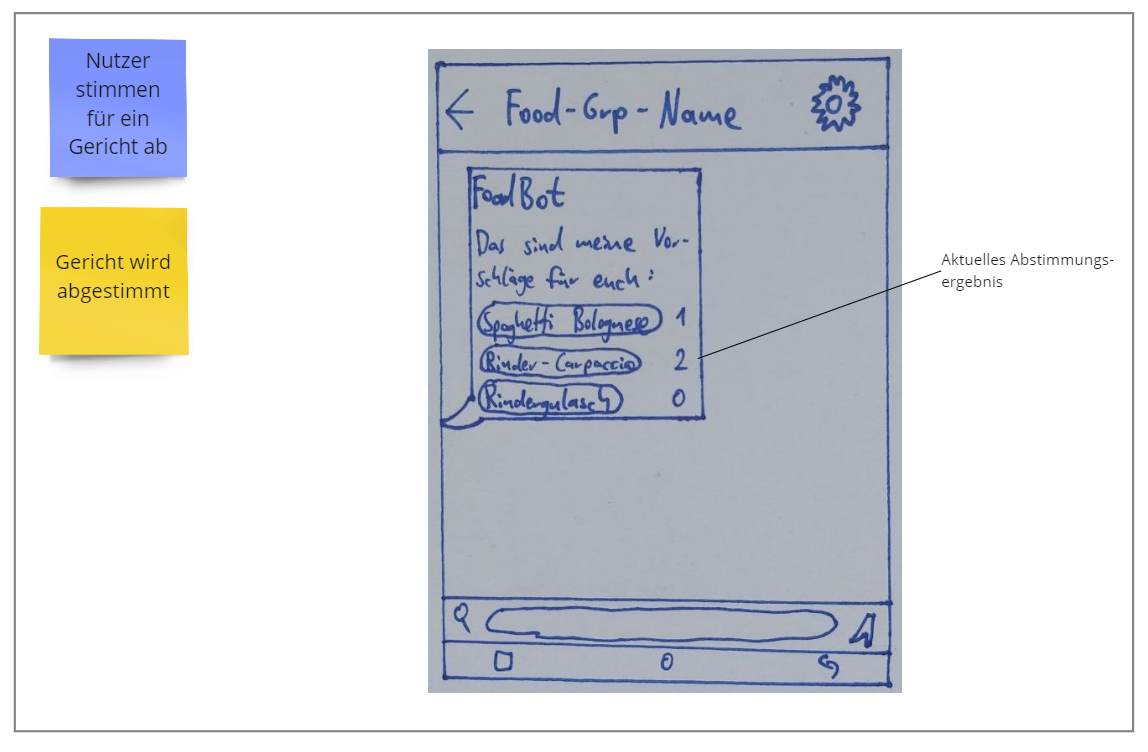 Nutzer
stimmen
für ein
Gericht ab
Gericht wird
abgestimmt
Food-Grp-Name
FoodBot
Das sind meine Vor-
schläge für euch:
Spaghetti Bolognese 1
Rinder-Carpaccio 2
Rindergulasch 0
Aktuelles Abstimmungs-
ergebnis